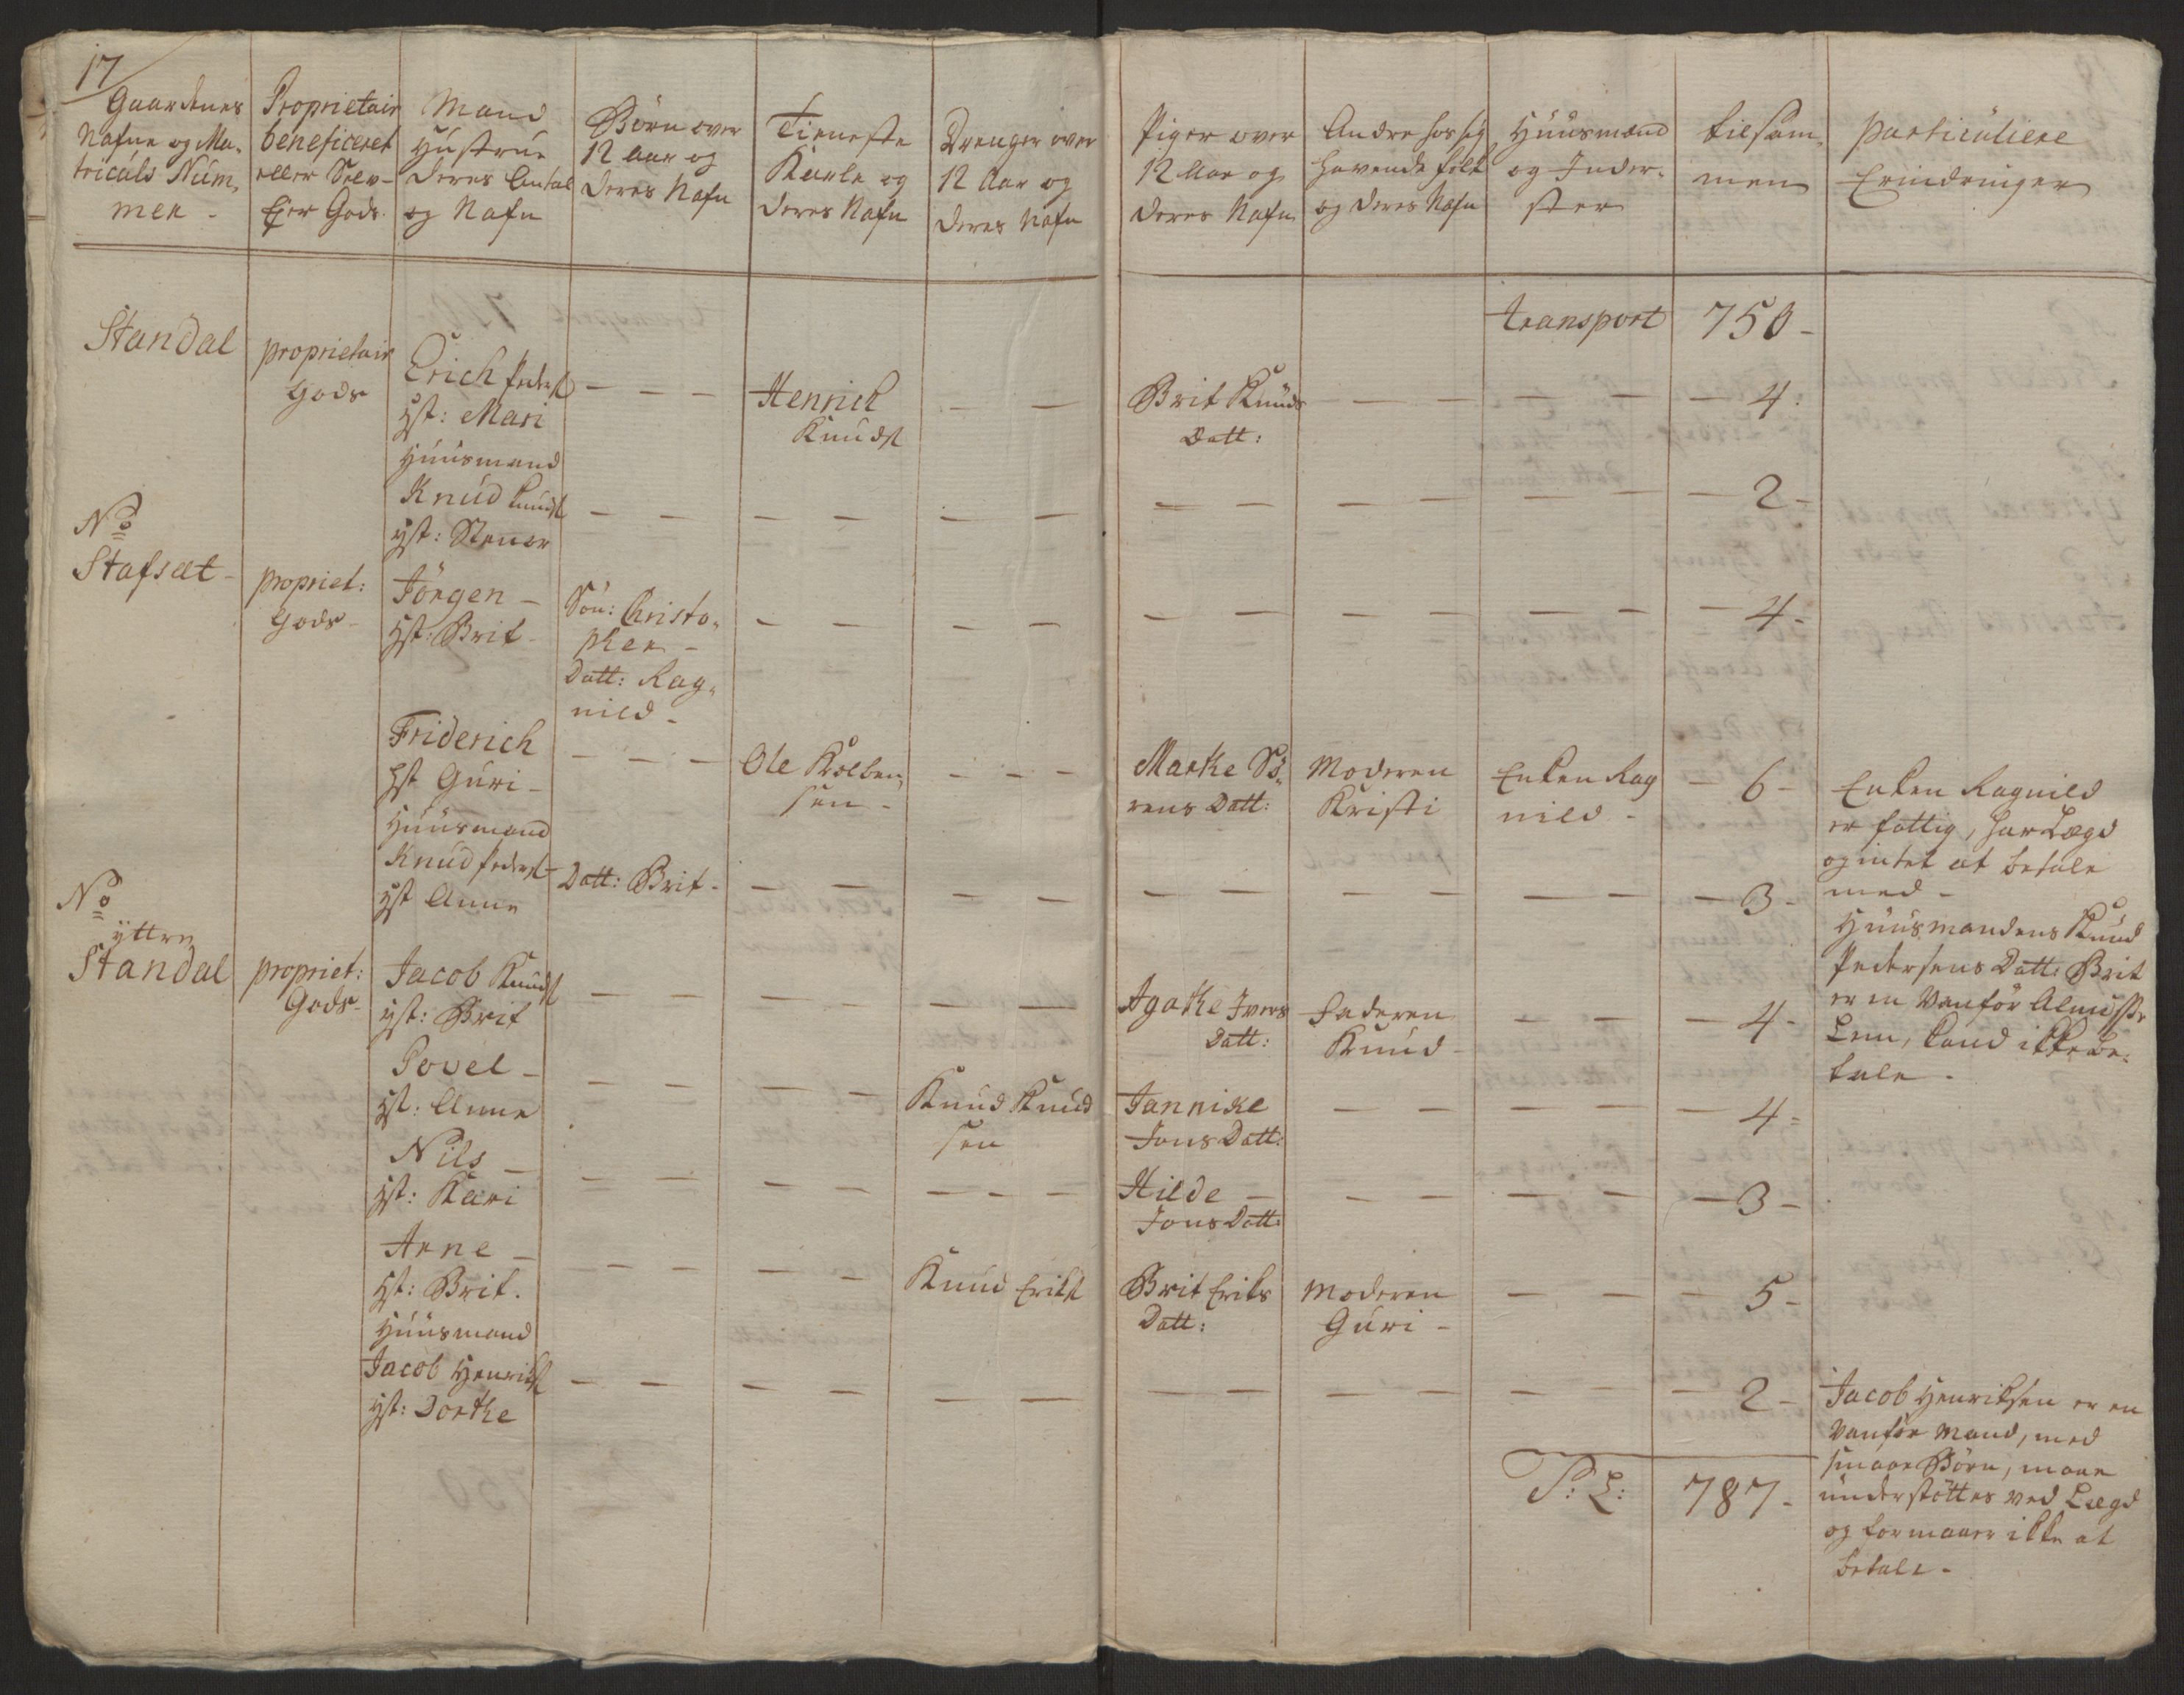 17
Gaardenes
Nafne og Ma-
triculs Num,
mer -
Proprietair
beneficeret
eller Selv-
Ejer Gods.
Mand
Hustrue
deres Antal
og Nafn
Börn over
12 Aar og
deres Nafn
Tieneste
Karle og
deres Nafn
Drenger over
12 Aar og
deres Nafn
Piger over
12 Aar og
deres Nafn
Andre hos sig
havende folk
og deres Nafn
Huusmænd
og Inder-
ster
tilsam,
men
particuliere
Erindringer
transport 750-
Standal
proprietair
Gods
Erich Peders
Hst: Mari
Henrich
Knuds
Brit Knuds
Datt:
4.
Huusmand
Knud Knuds
Hst: Stener
2-
No
Stafset -
propriet:
Gods -
Jörgen -
Hst: Brit -
Sön: Christo-
pher -
Datt: Rag-
nild -
4-
Friderich
Hst Guri -
Ole Kolben,
sen -
Marte Sö-
rens Datt:
Moderen
Kristi
Enken Rag
nild -
6-
Enken Ragnild
er fattig, har Lægd
og intet at betale
med -
Huusmand
Knud Peders-
Hst Anne
Datt: Brit -
3-
Huusmandens Knud
Pedersens Datt: Brit
er en Vanför Almisse
Lem, kand ikke be-
tale -
No
yttre
Standal
propriet:
Gods -
Jacob Knuds
Hst: Brit
Agathe Ivers
Datt:
Faderen
Knud -
4-
Povel -
Hst: Anne
Knud Knud
sen
Jannike
Jons Datt:
4-
Nils -
Hst: Kari
Hilde -
Jons Datt:
3-
Arne -
Hst: Brit.
Knud Eriks
Brit Eriks
Datt:
Moderen
Guri -
5-
Huusmand
Jacob Henriks
Hst: Dorthe
2-
Jacob Henriksen er en
Vanför Mand, med
smaae Börn, maae
understöttes ved Lægd
og formaaer ikke at
betale -
P: L: 787-